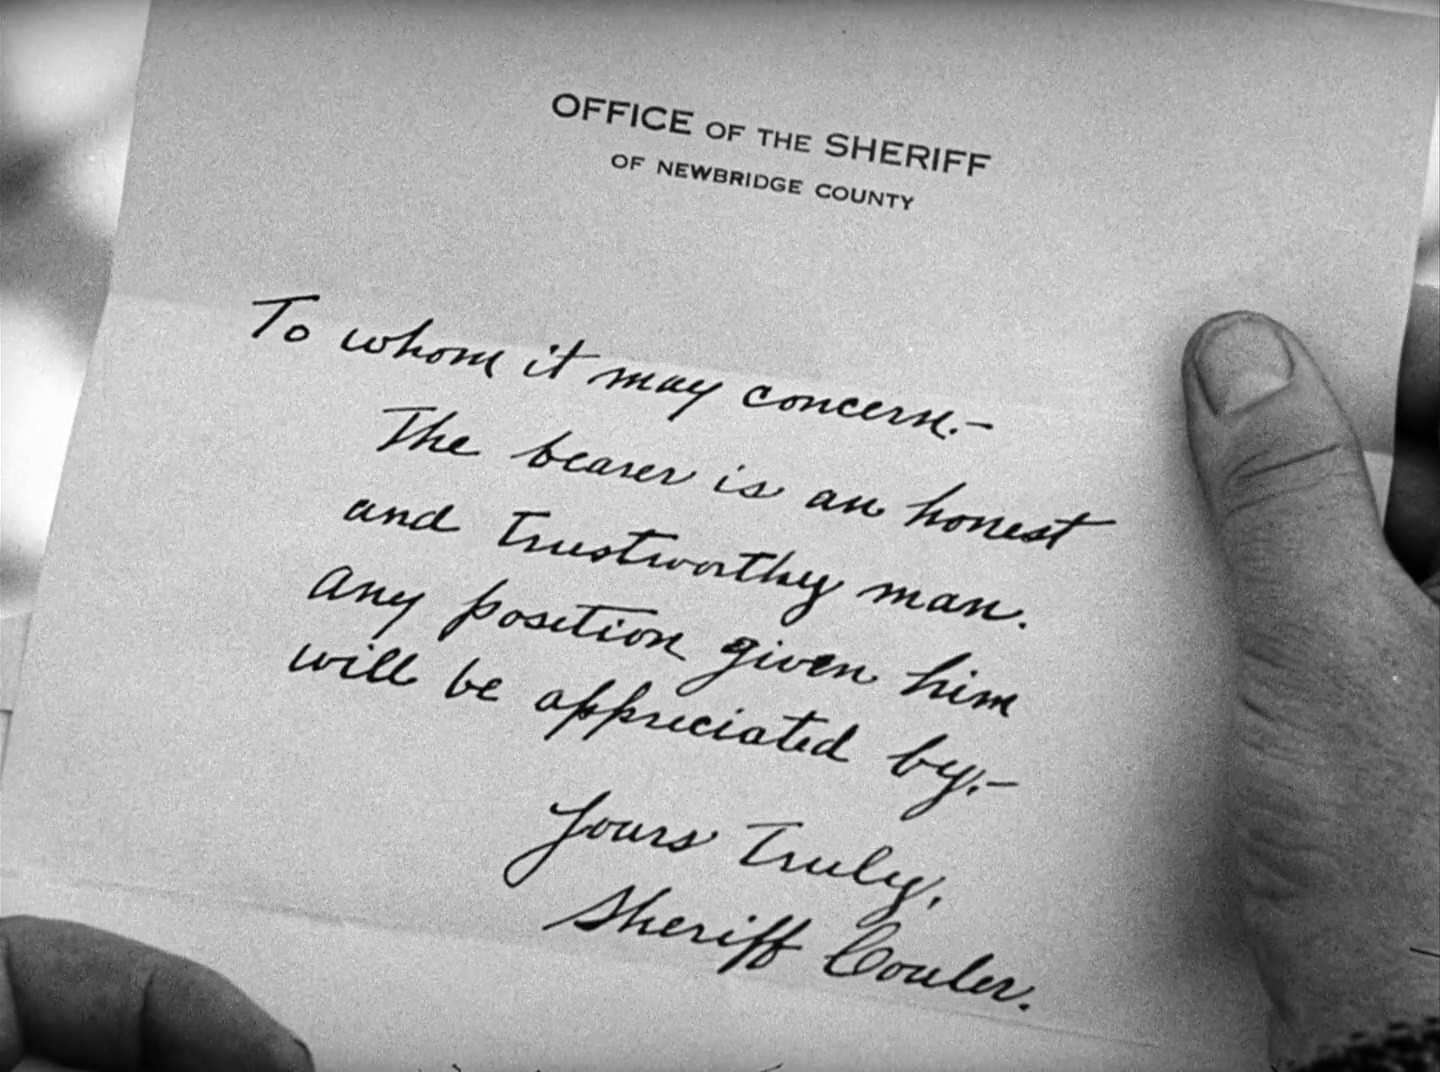 OFFICE OF THE SHERIFF
OF NEWBRIDGE COUNTY
To whom it may concern.-
The bearer is an honest
and trustworthy man.
any position given him
will be appreciated by.-
Yours Truly,
Sheriff Couler.